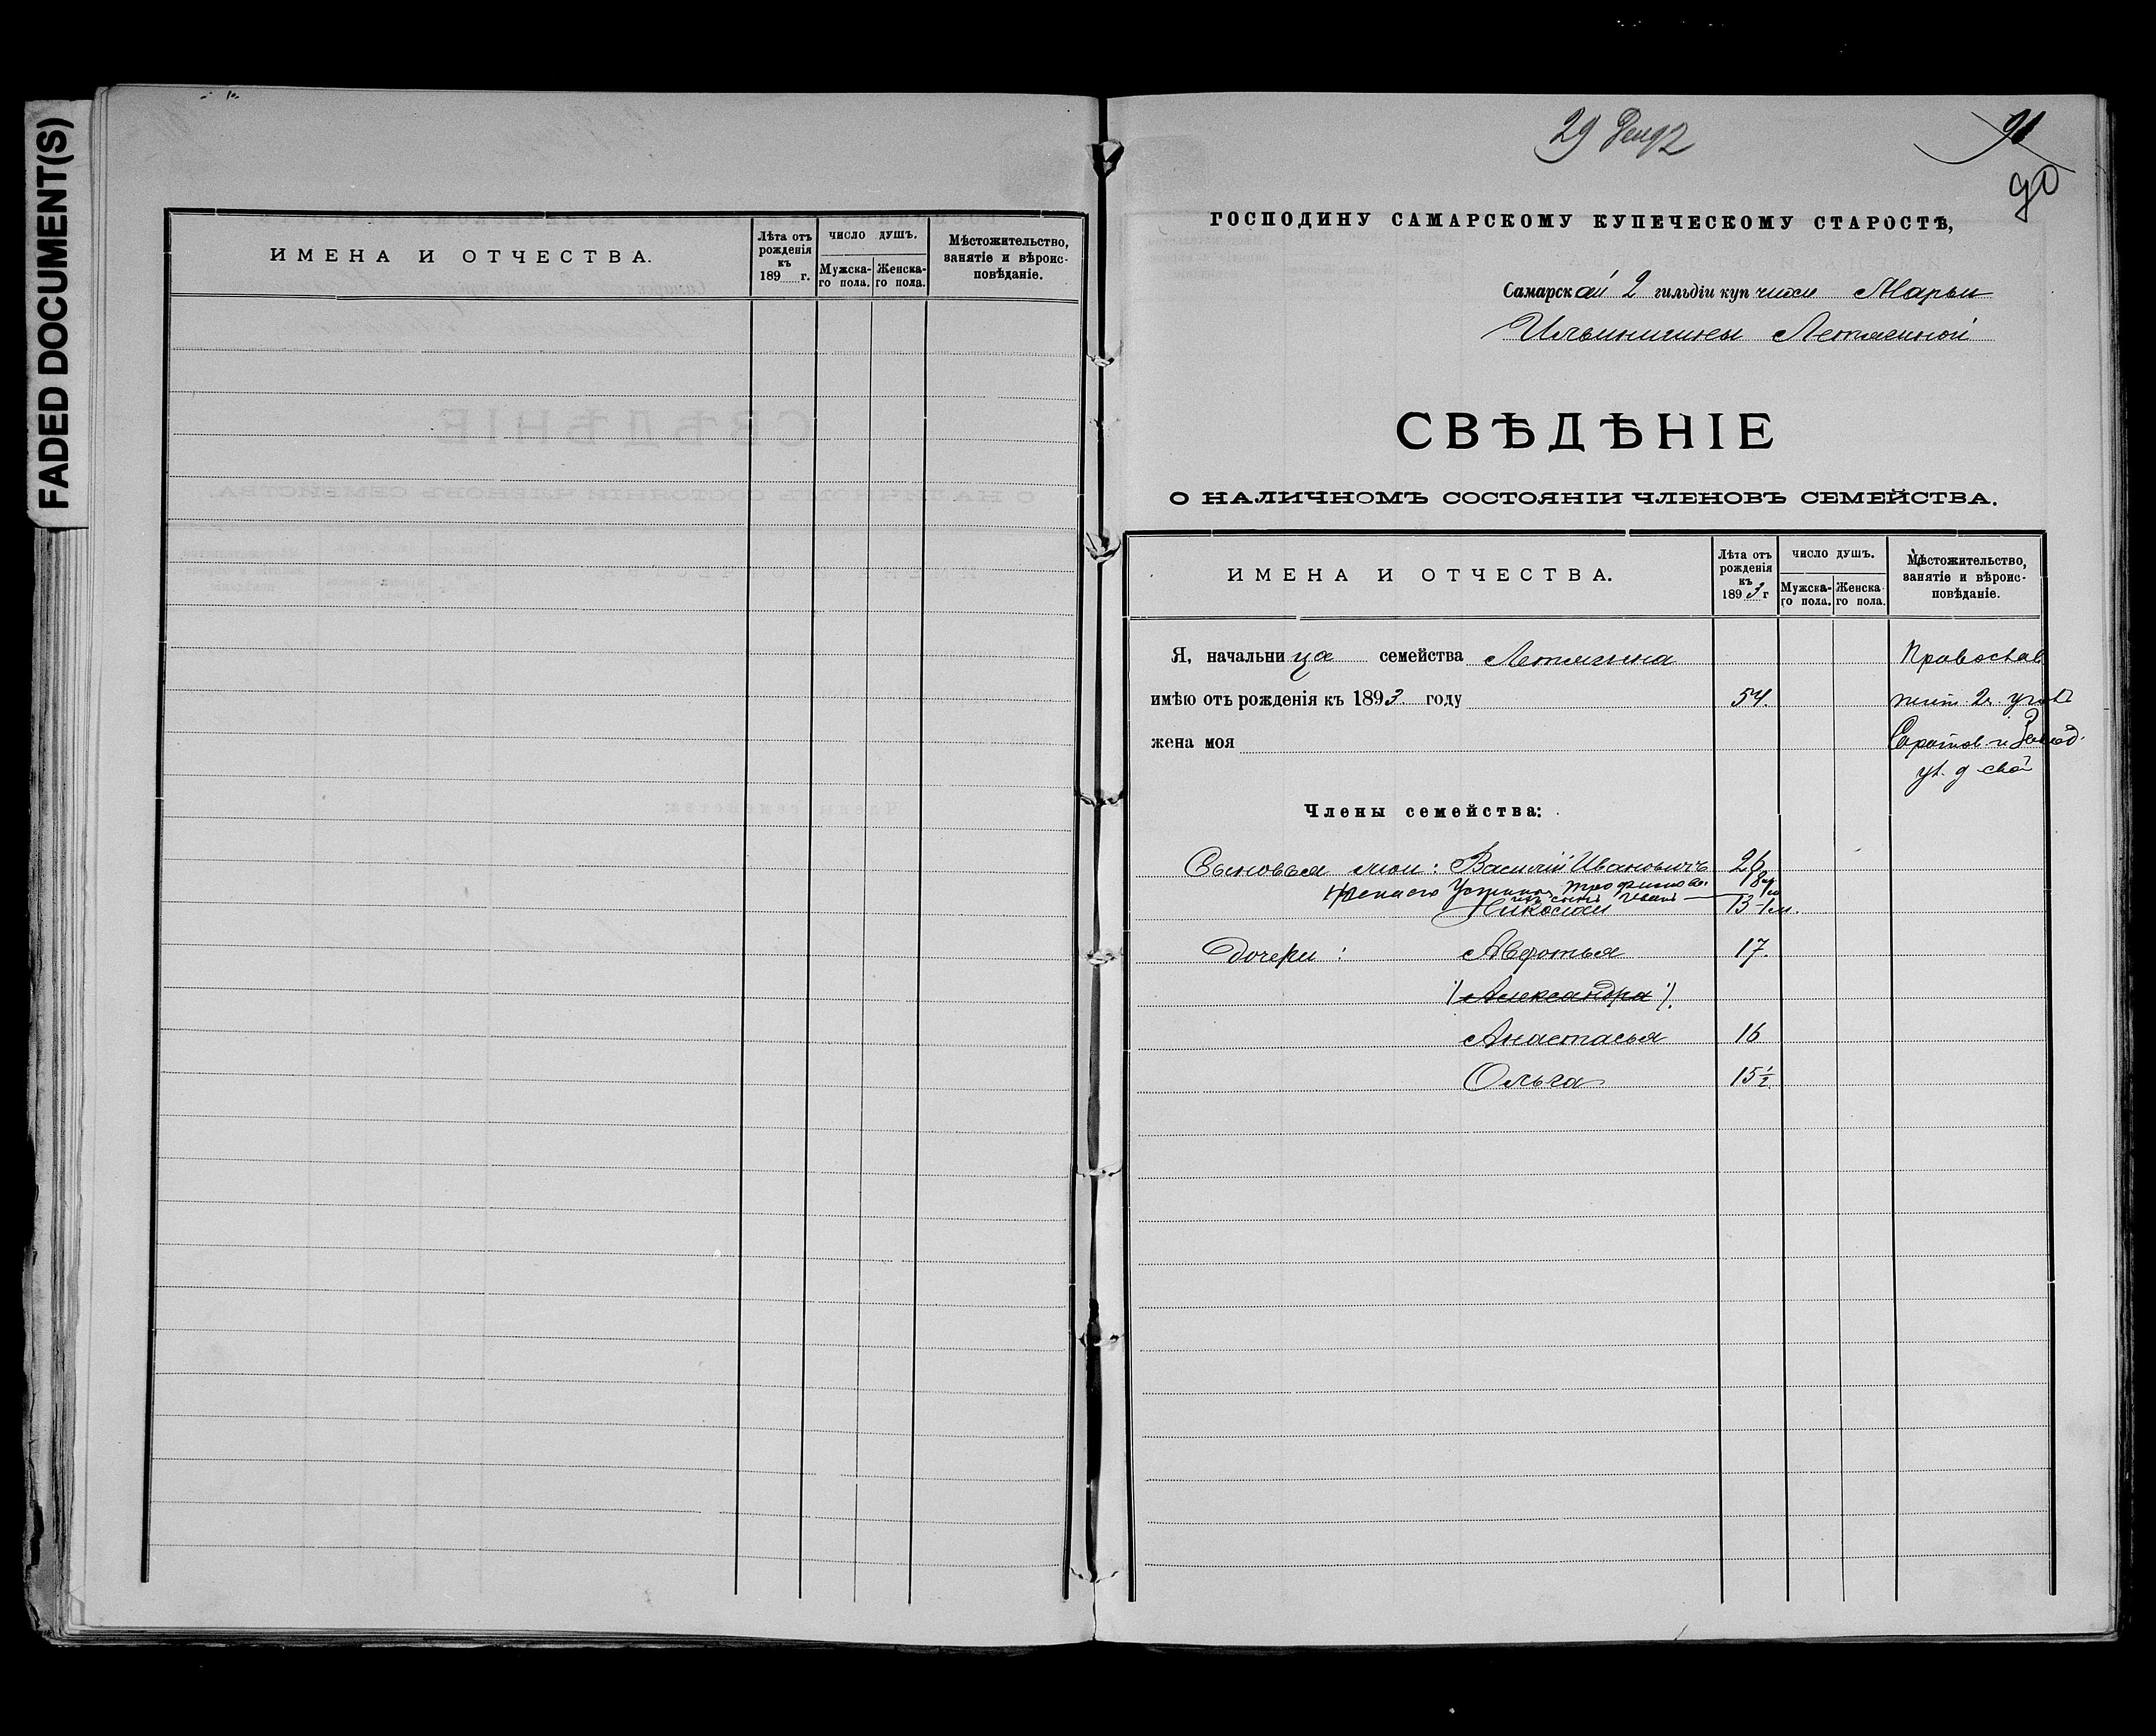 FADED DOCUMENT(S)
ИМЕНА И ОТЧЕСТВА.
Лѣта отъ рожденія къ 189 г.
ЧИСЛО ДУШЪ.
Мужскаго пола.
Женскаго пола.
Мѣстожительство, занятіе и вѣроисповѣданіе.
29 Дек 92
91
90
ГОСПОДИНУ САМАРСКОМУ КУПЕЧЕСКОМУ СТАРОСТѢ,
Самарской 2 гильдіи купчихи Марьи
Ильинишны Летягиной
СВѢДѢНІЕ
О НАЛИЧНОМЪ СОСТОЯНІИ ЧЛЕНОВЪ СЕМЕЙСТВА.
ИМЕНА И ОТЧЕСТВА.
Лѣта отъ рожденія къ 1893 г
ЧИСЛО ДУШЪ.
Мужскаго пола.
Женскаго пола.
Мѣстожительство, занятіе и вѣроисповѣданіе.
Я, начальница семейства Летягина Православ
имѣю отъ рожденія къ 1893 году 54. жит. 2 ч.
жена моя Саратов. и
уг. д свой
Члены семейства:
Сыновья мои: Василій Ивановичъ 26
жена его Устинья Трофимова 18
ихъ сынъ Иванъ 1 м.
Николай 13
Дочери: Авдотья 17.
(Александра).
Анастасья 16
Ольга 15 1/2